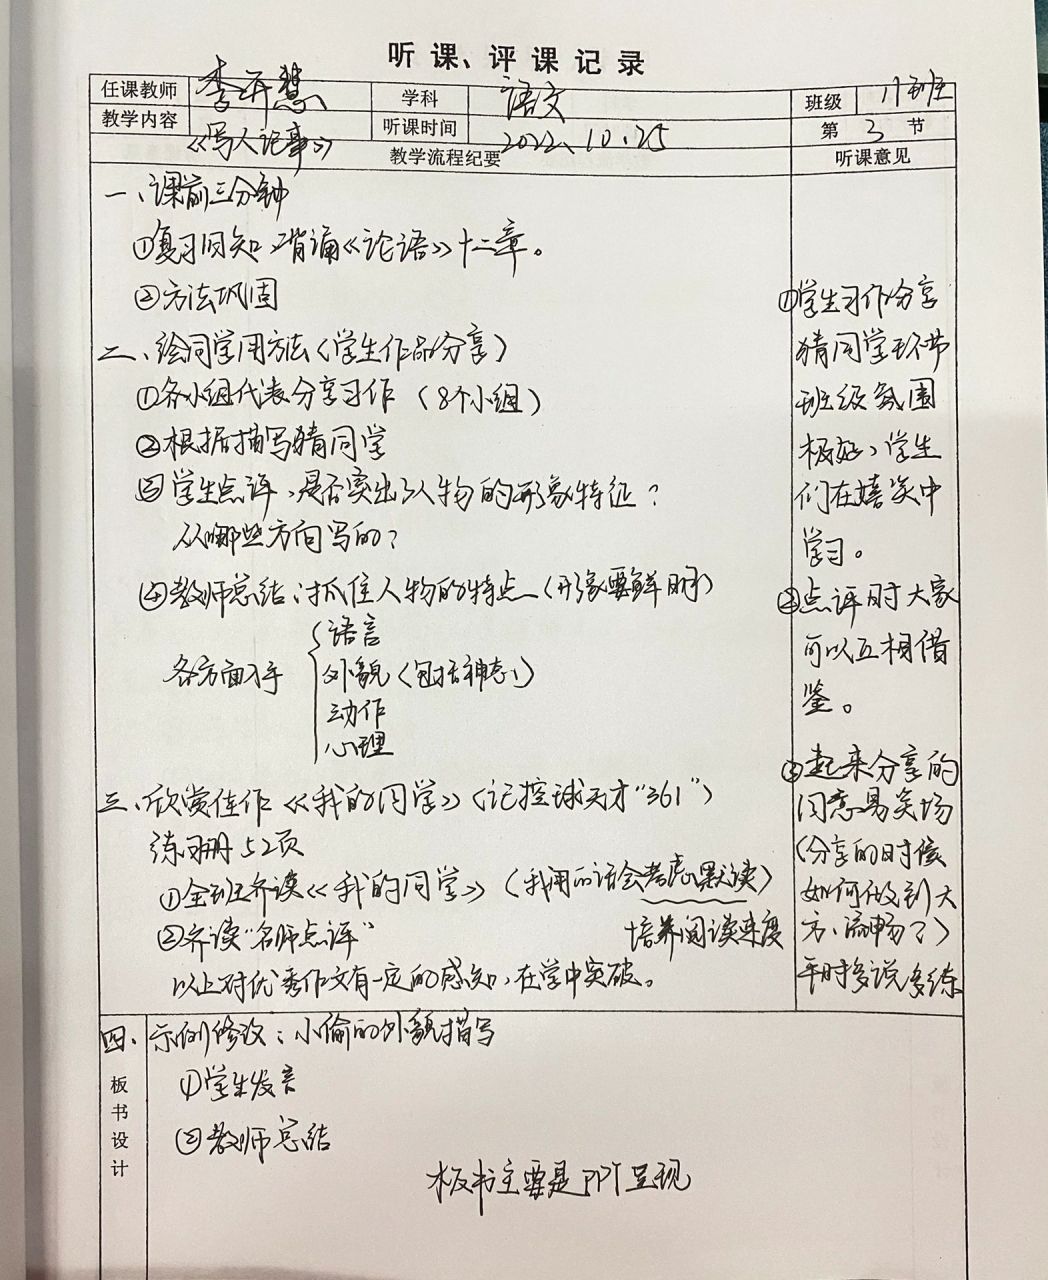 听课、评课记录
任课教师 李开慧 学科 语文 班级 11班
教学内容 《写人记事》 听课时间 2022.10.25 第 3 节
教学流程纪要 听课意见
一、课前三分钟
①复习旧知,背诵《论语》十二章。
②方法巩固
二、绘同学用方法(学生作品分享)
①各小组代表分享习作(8个小组)
②根据描写猜同学
③学生点评,是否突出了人物的形象特征?
从哪些方向写的?
④教师总结:抓住人物的特点(形象要鲜明)
各方面入手
语言
外貌(包括神态)
动作
心理
三、欣赏佳作《我的同学》(记控球天才"361")
练习册52页
①全班齐读《我的同学》(我用的话会考虑默读)
培养阅读速度
②齐读"名师点评"
以上对优秀作文有一定的感知,在学中突破。
①学生习作分享
猜同学环节
班级氛围
极好,学生
们在嬉笑中
学习。
②点评时大家
可以互相借
鉴。
③起来分享的
同意易笑场
(分享的时候
如何做到大
方、流畅?)
平时多说多练
四、示例修改:小偷的外貌描写
①学生发言
②教师总结
板书设计
板书主要是PPT呈现